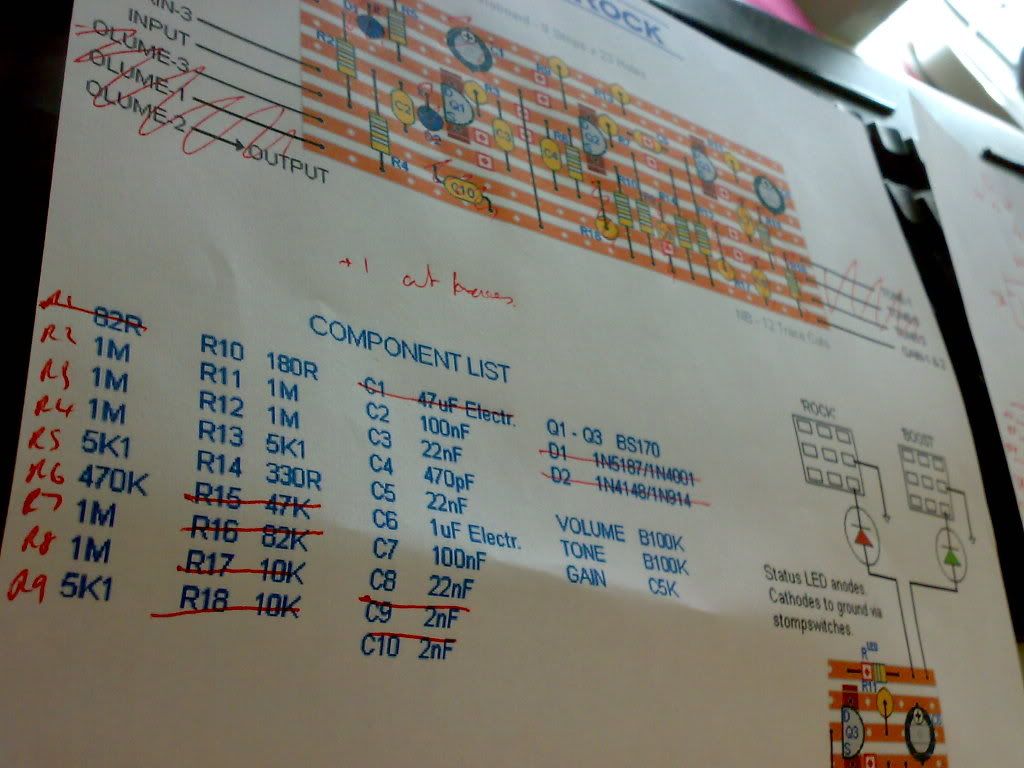 ROCK
9 Strips x 25 Holes
INPUT
OLUME-3
OLUME-1
OLUME-2
OUTPUT
D1
R2
R4
C2
D2
Q1
R3
C3
C10
C4
Q2
R10
R18
+1 cut traces
NB - 12 Trace Cuts
GAIN-1 & 2
COMPONENT LIST
R1 82R
R2 1M
R3 1M
R4 1M
R5 5K1
R6 470K
R7 1M
R8 1M
R9 5K1
R10 180R
R11 1M
R12 1M
R13 5K1
R14 330R
R15 47K
R16 82K
R17 10K
R18 10K
C1 47uF Electr.
C2 100nF
C3 22nF
C4 470pF
C5 22nF
C6 1uF Electr.
C7 100nF
C8 22nF
C9 2nF
C10 2nF
Q1 - Q3 BS170
D1 1N5187/1N4001
D2 1N4148/1N914
VOLUME B100K
TONE B100K
GAIN C5K
'ROCK'
'BOOST'
Status LED anodes.
Cathodes to ground via
stompswitches.
R LED
R11
D
Q3
S